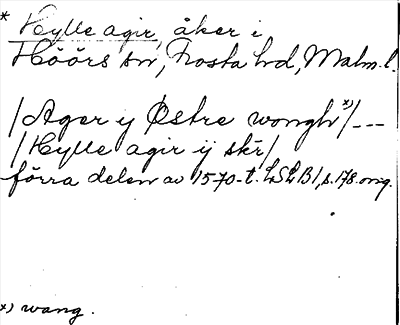 * Hylle agir, åker i
Höörs sn, Frosta hd, Malm. l.
/Ager ij Östre wongh *)/---
/Hylle agir ij skr/
förra delen av 1570-t. LSLB1, s. 178. omg.
*) wang.